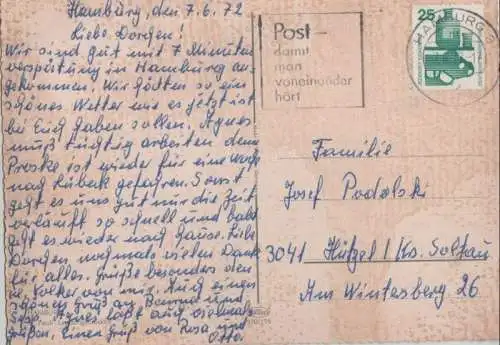 Hamburg, den 7.6.72
Liebe Dorgen!
Wir sind gut mit 7 Minuten
verspätung in Hamburg an-
gekommen. Wir hätten so ein
schönes Wetter wie es jetzt ist
bei Euch haben sollen. Agnes
muß tüchtig arbeiten denn
Proske ist wieder für eine Woche
nach Lübeck gefahren. Sonst
geht es uns gut nur die Zeit
verläuft so schnell und bald
geht es wieder nach Hause. Liebe
Dorgen nochmals vielen Dank
für alles. Grüße besonders den
Volker von mir. Auch einen
schönen Gruß an und
Sepp. Agnes läßt auch vielmals
grüßen. Einen Gruß von Rosa und
Otto.
Post -
damit
man
voneinander
hört
25
HAMBURG
Familie
Josef Podolski
3041 Hützel / Ks. Soltau
Am Wintersberg 26